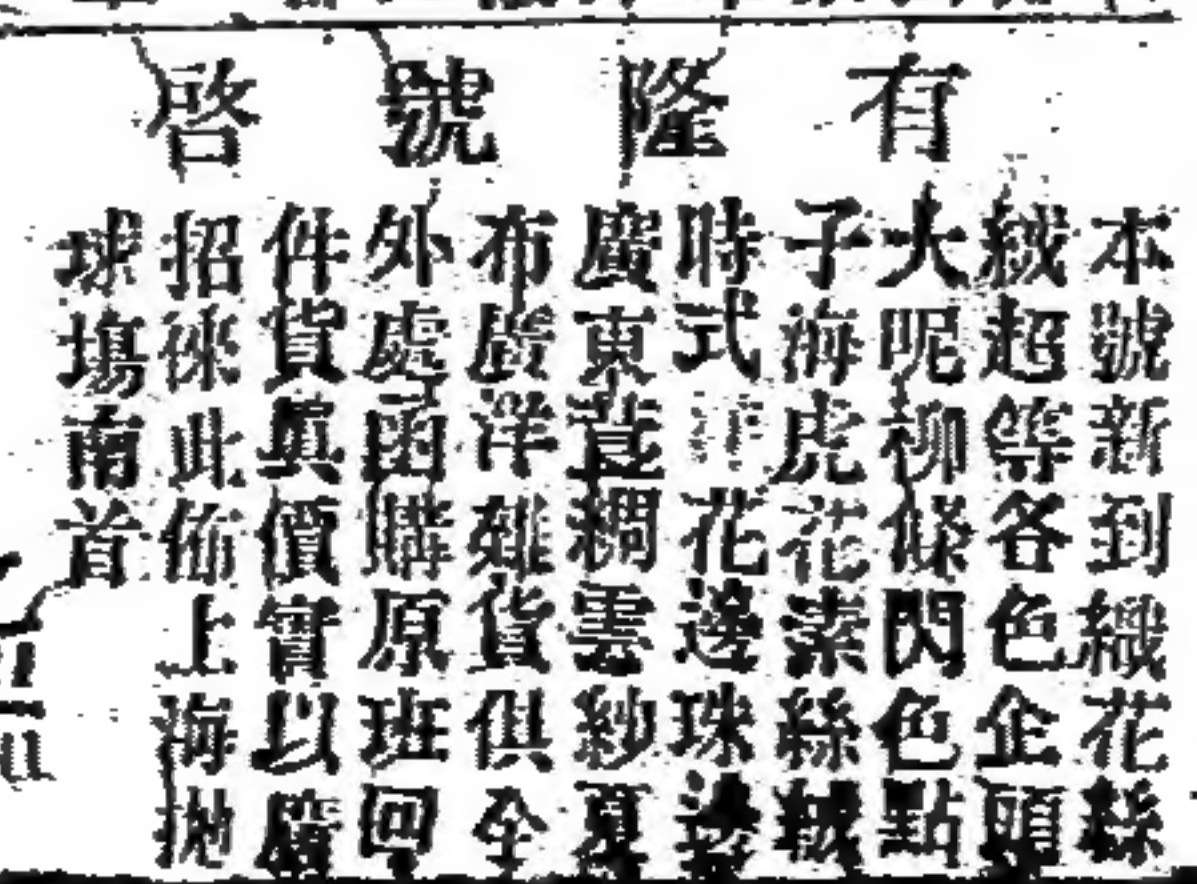 有隆號啓
本號新到織花絲
絨超等各色企頭
大呢柳條閃色點
子海虎花素絲絨
時式洋花邊珠邊
廣東荳綢雲紗夏
布廣洋雜貨俱全
外處函購原班回
件貨眞價實以廣
招徠此佈 上海拋
球塲南首